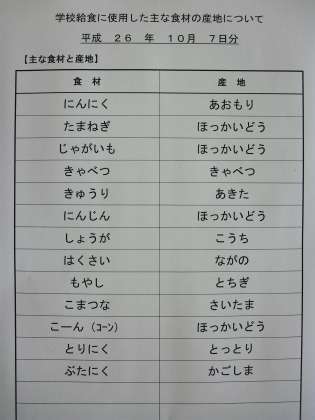 学校給食に使用した主な食材の産地について
平成 26 年 10月 7日分
【主な食材と産地】
食 材 産 地
にんにく あおもり
たまねぎ ほっかいどう
じゃがいも ほっかいどう
きゃべつ きゃべつ
きゅうり あきた
にんじん ほっかいどう
しょうが こうち
はくさい ながの
もやし とちぎ
こまつな さいたま
こーん（ｺｰﾝ） ほっかいどう
とりにく とっとり
ぶたにく かごしま